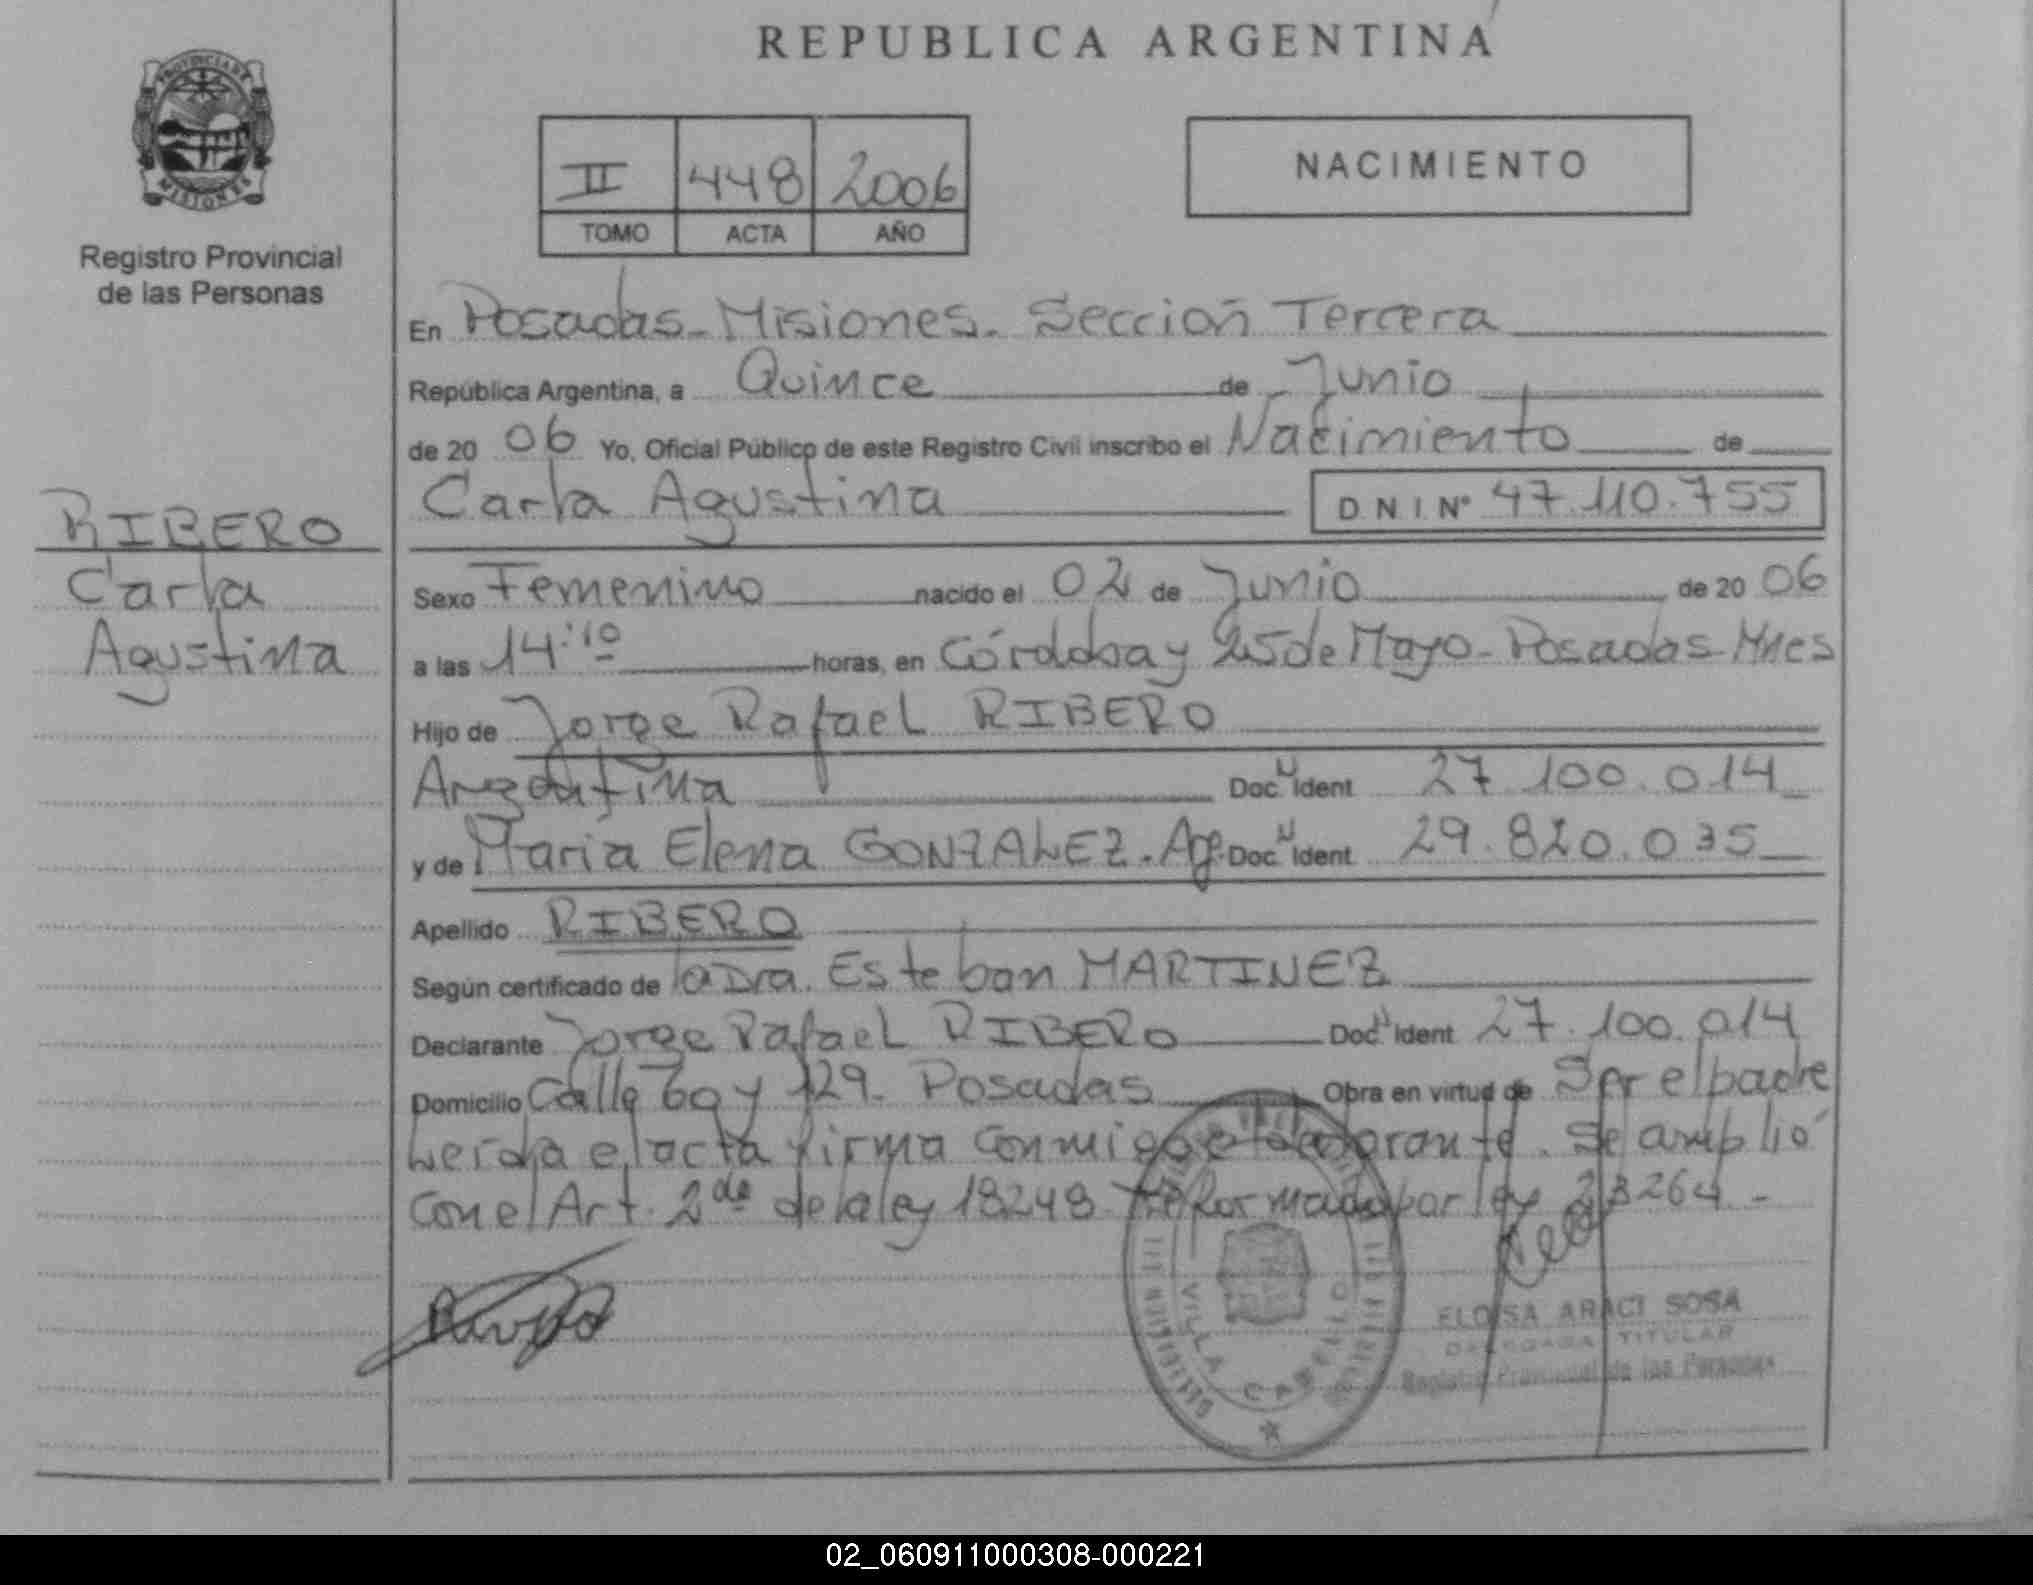 REPUBLICA ARGENTINA
PROVINCIA DE
MISIONES
Registro Provincial
de las Personas
II 448 2006
TOMO ACTA AÑO
NACIMIENTO
En Posadas-Misiones. Sección Tercera
República Argentina, a Quince de Junio
de 20 06 Yo, Oficial Público de este Registro Civil inscribo el Nacimiento de
Carla Agustina D N I Nº 47.110.755
RIBERO
Carla
Agustina
Sexo Femenino nacido el 02 de Junio de 20 06
a las 14:10 horas, en Córdoba y 25 de Mayo-Posadas-Mnes
Hijo de Jorge Rafael RIBERO
Argentina Doc. Ident 27.100.014
y de María Elena GONZALEZ. Ag. Doc. Ident 29.820.035
Apellido RIBERO
Según certificado de la Dra. Esteban MARTINEZ
Declarante Jorge Rafael RIBERO Doc. Ident 27.100.014
Domicilio Calle 60 y 129. Posadas Obra en virtud de Ser el padre
Leída el acta firma conmigo el declarante. Se amplió
con el Art. 2do de la ley 18248 reformado por ley 23264-
VILLA CABELLO
ELOISA ARACI SOSA
DELEGADA TITULAR
Registro Provincial de las Personas
02_060911000308-000221